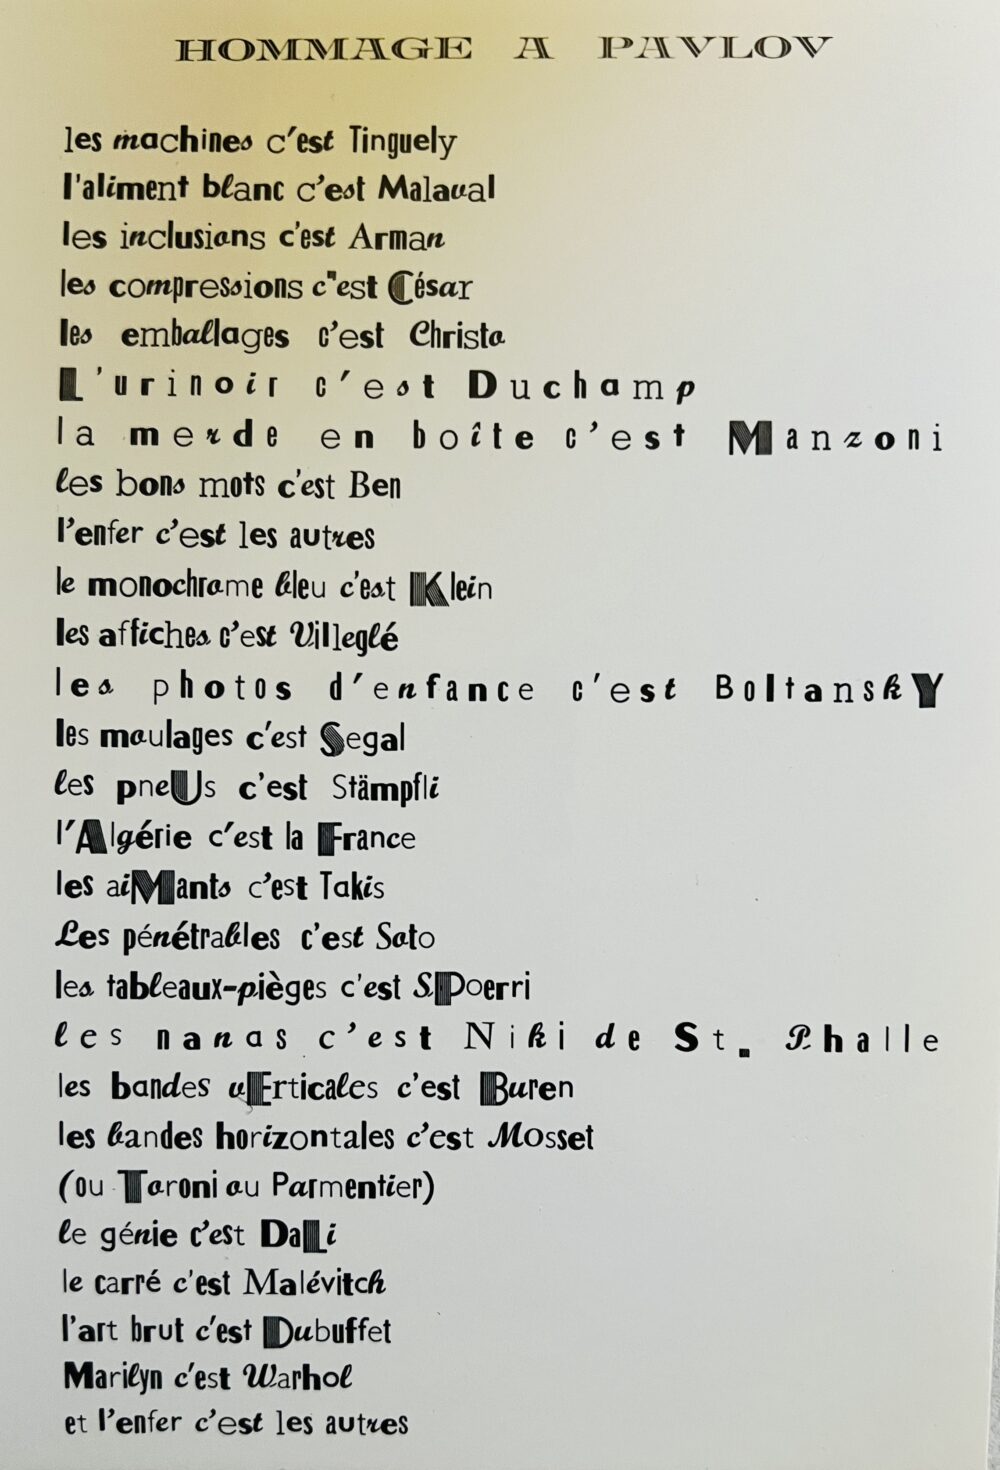 HOMMAGE A PAVLOV
les machines c'est Tinguely
l'aliment blanc c'est Malaval
les inclusions c'est Arman
les compressions c"est César
les emballages c'est Christo
L'urinoir c'est Duchamp
la merde en boîte c'est Manzoni
les bons mots c'est Ben
l'enfer c'est les autres
le monochrome bleu c'est Klein
les affiches c'est Villeglé
les photos d'enfance c'est BoltanskY
les moulages c'est Segal
les pneUs c'est Stämpfli
l'Algérie c'est la France
les aiMants c'est Takis
Les pénétrables c'est Soto
les tableaux-pièges c'est SPoerri
les nanas c'est Niki de St. Phalle
les bandes vErticales c'est Buren
les bandes horizontales c'est Mosset
(ou Toroni ou Parmentier)
le génie c'est DaLi
le carré c'est Malévitch
l'art brut c'est Dubuffet
Marilyn c'est Warhol
et l'enfer c'est les autres